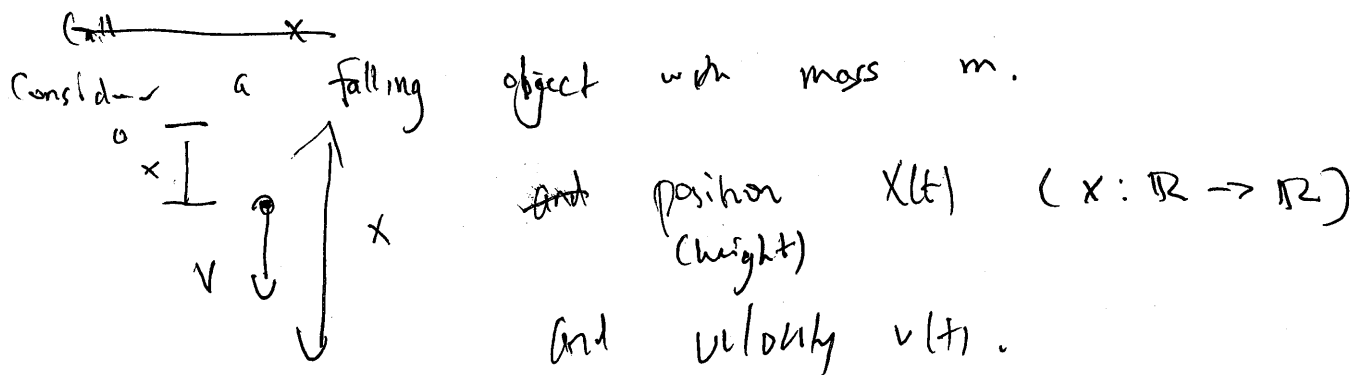 Call x
Consider a falling object with mass m.
0
x
and position x(t) (x: ℝ → ℝ)
x
(height)
V
and velocity v(t).